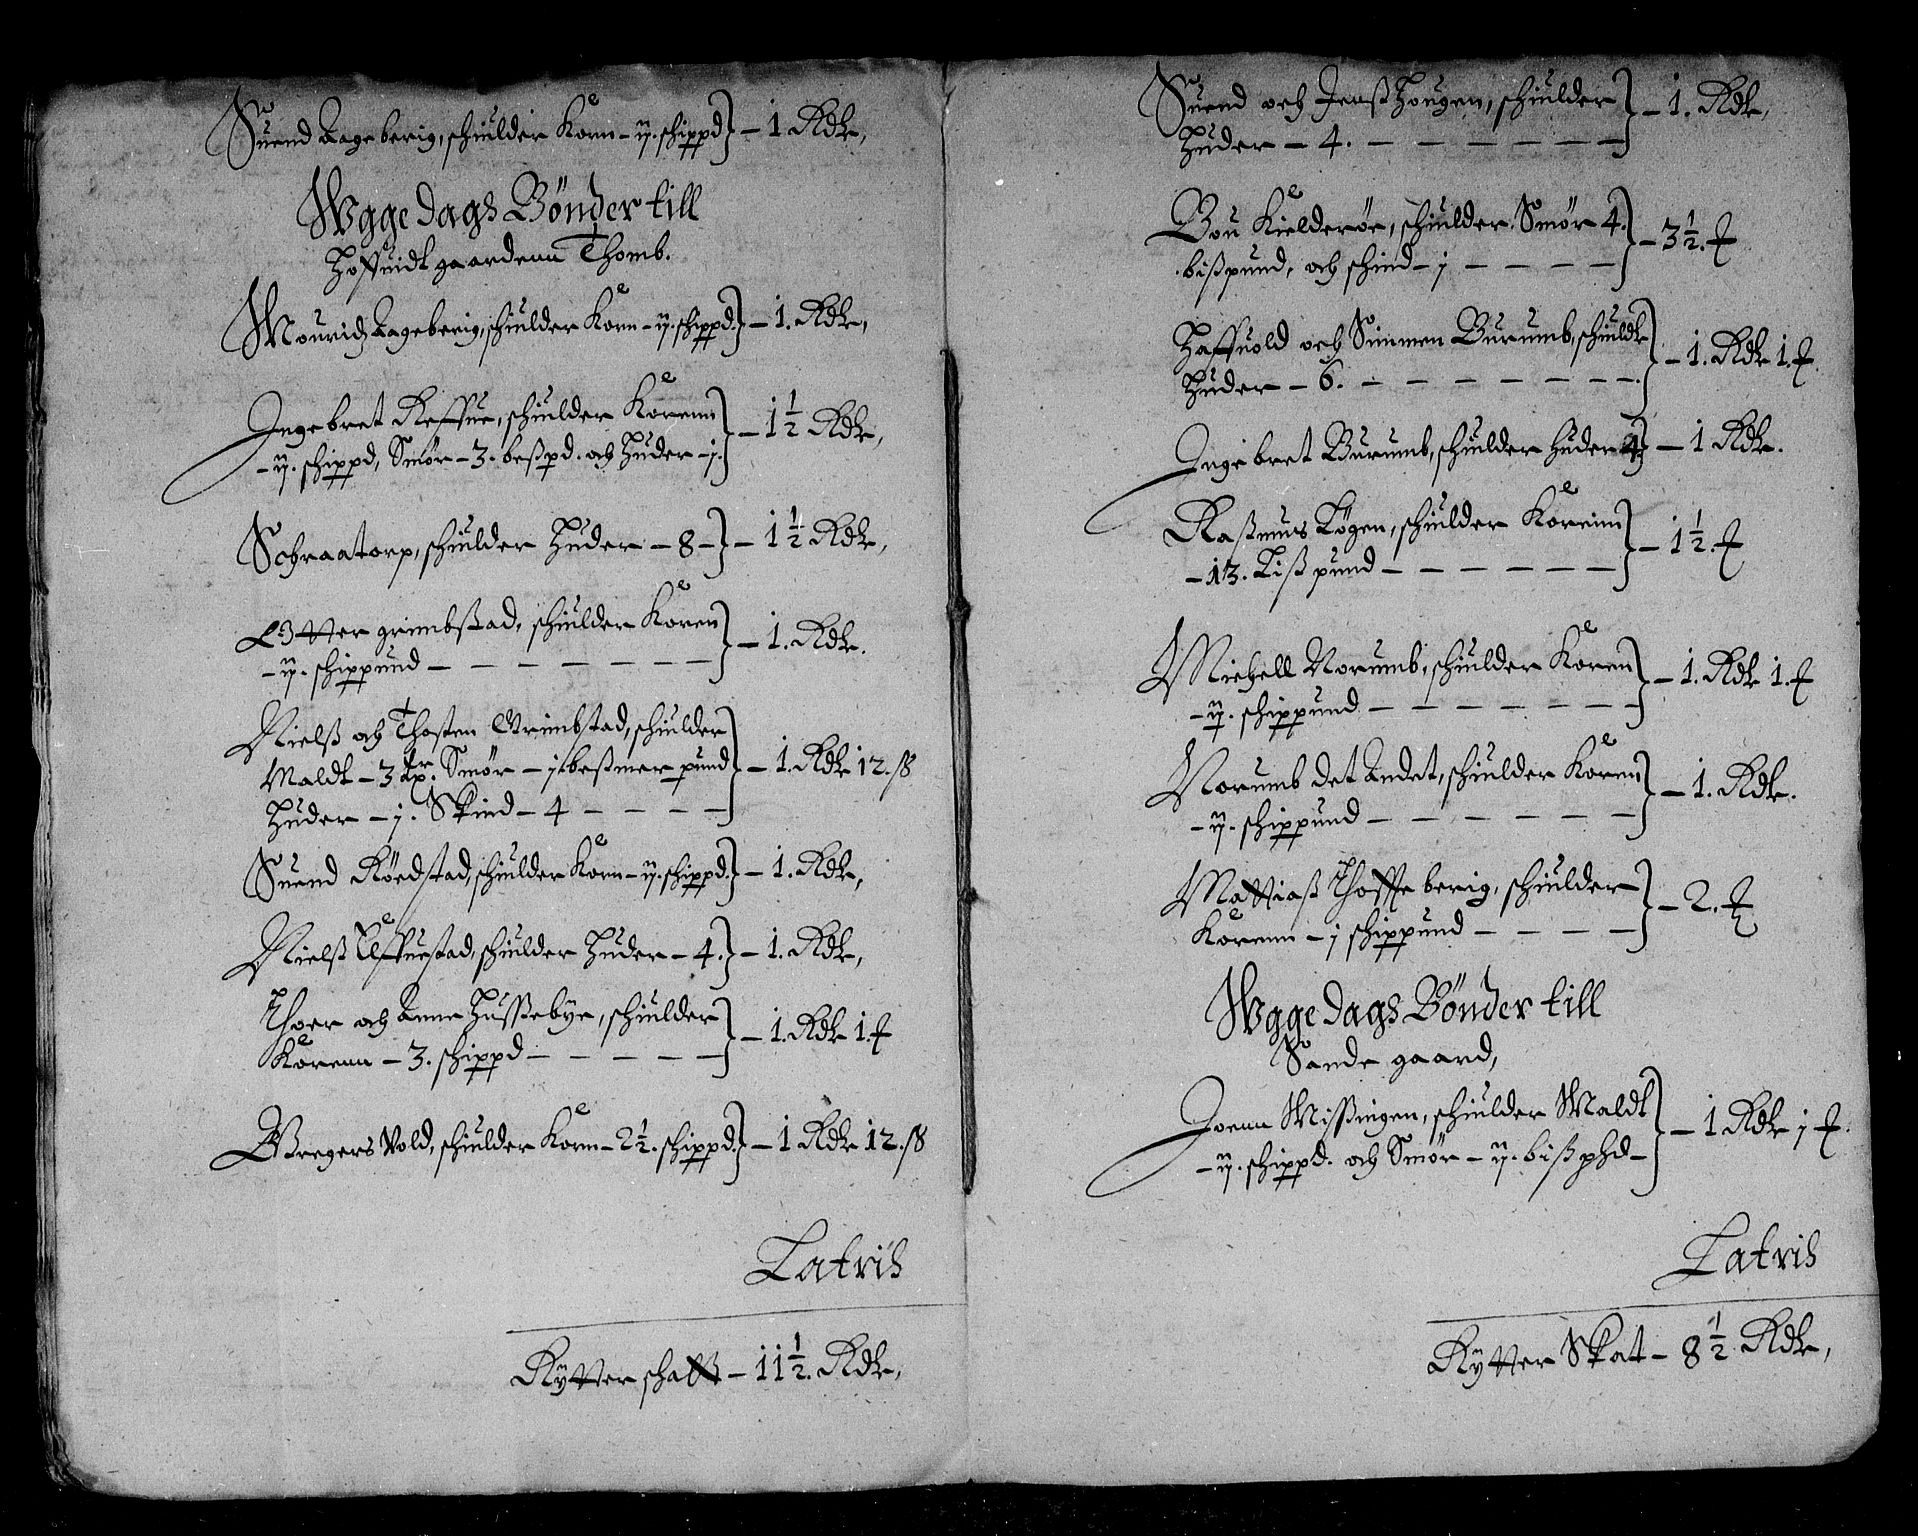 Suend Aageberig, schiulder Korn - ij. schippd - 1 Rdlr,
Wggedags Bønder till
Hoffuidtgaardenn Thomb.
Mouridz Aageberig, schiulder Korn - ij. schippd. - 1. Rdlr,
Ingebret Reffue, schiulder Korenn
- ij. schippd, Smør - 3. bespd. och Huder - j. - 1½ Rdlr,
Schraatorp, schiulder Huder - 8 - - 1½ Rdlr,
Otter grimbstad, schiulder Koren
- ij. schippund - - 1. Rdlr.
Nielß och Thosten Grimbstad, schiulder
Maldt - 3 Smør - j. beßmer pund - 1. Rdlr 12. ß
Huder - j. Skind - 4
Suend Röedstad, schiulder Korn - ij. schippd. - 1. Rdlr,
Nielß Elffuestad, schiulder Huder - 4. - 1. Rdlr,
Thoer och Anne Hussebye, schiulder
Korenn - 3. schippd - 1. Rdlr 1. ₰
Gregers Vold, schiulder Korn - 2½. schippd. - 1 Rdlr 12. ß
Latris
Rytter schatt - 11½. Rdlr,
Suend och Jenß Hougen, schiulder
Huder - 4. - 1. Rdlr,
Bou Kielderøe, schiulder Smør 4.
bißpund, och schind - j - 3½. ₰
Haffuold och Simmen Burumb, schiuldr
Huder - 6. - 1. Rdlr 1. ₰
Ingebret Burumb, schiulder huder 4 - 1 Rdlr.
Raßmus Løgen, schiulder Korenn
- 13. Lißpund - 1½. ₰
Michell Norumb, schiulder Koren
- ij. schippund - 1. Rdlr 1. ₰
Norumb det Andet, schiulder Koren
- ij. schippund - 1. Rdlr.
Mattiaß Thoffteberig, schiulder
Korenn - j schippund - 2. ₰
Wggedags Bønder till
Sande gaard,
Joenn Missingen, schiulder Maldt
- ij. schippd. och Smør - ij. bißphd - 1 Rdlr j ₰.
Latris
Rytter Skat - 8½ Rdlr,